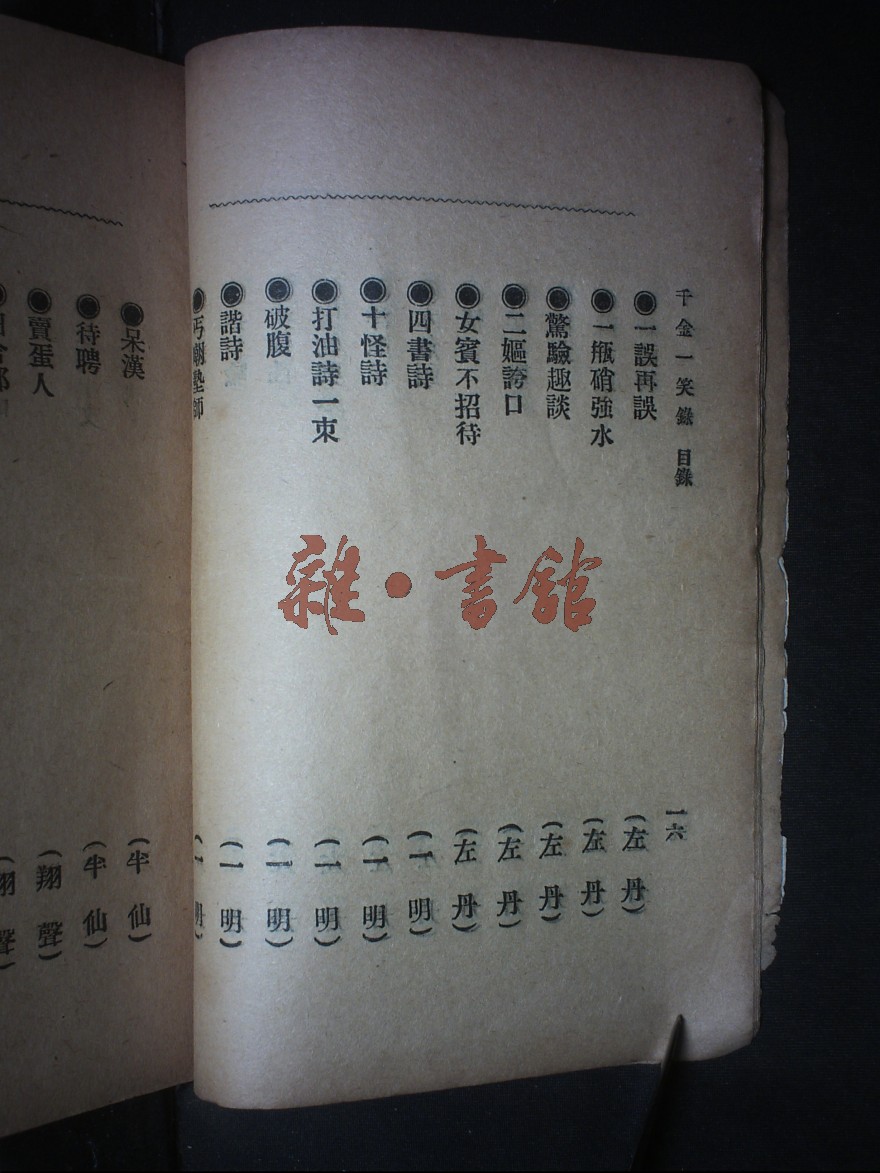 千金一笑錄 目錄 一六
◉一誤再誤 (左丹)
◉一瓶硝強水 (左丹)
◉驚驗趣談 (左丹)
◉二嫗誇口 (左丹)
◉女賓不招待 (左丹)
◉四書詩 (一明)
◉十怪詩 (一明)
◉打油詩一束 (一明)
◉破腹 (一明)
◉諧詩 (一明)
◉丐嘲塾師 (一明)
◉呆漢 (半仙)
◉待聘 (半仙)
◉賣蛋人 (翔聲)
(翔聲)
雜·書館